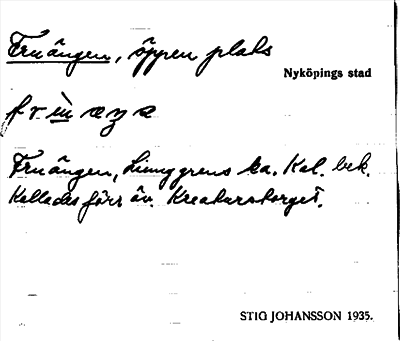 Fruängen, öppen plats
Nyköpings stad
Fruängen, Ljunggrens ka. Kal. bek.
Kallades förr äv. Kreaturstorget.
STIG JOHANSSON 1935.